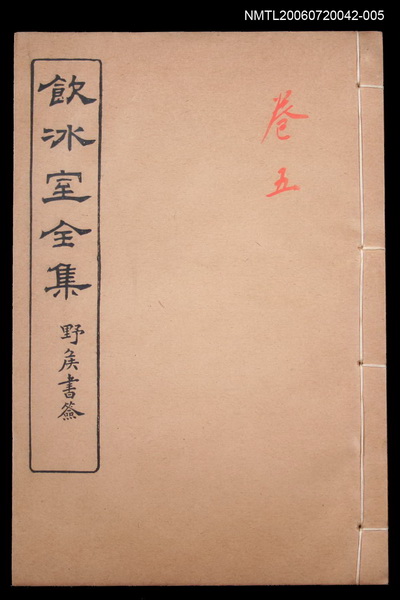 NMTL20060720042-005
卷五
飲冰室全集
野矦書簽